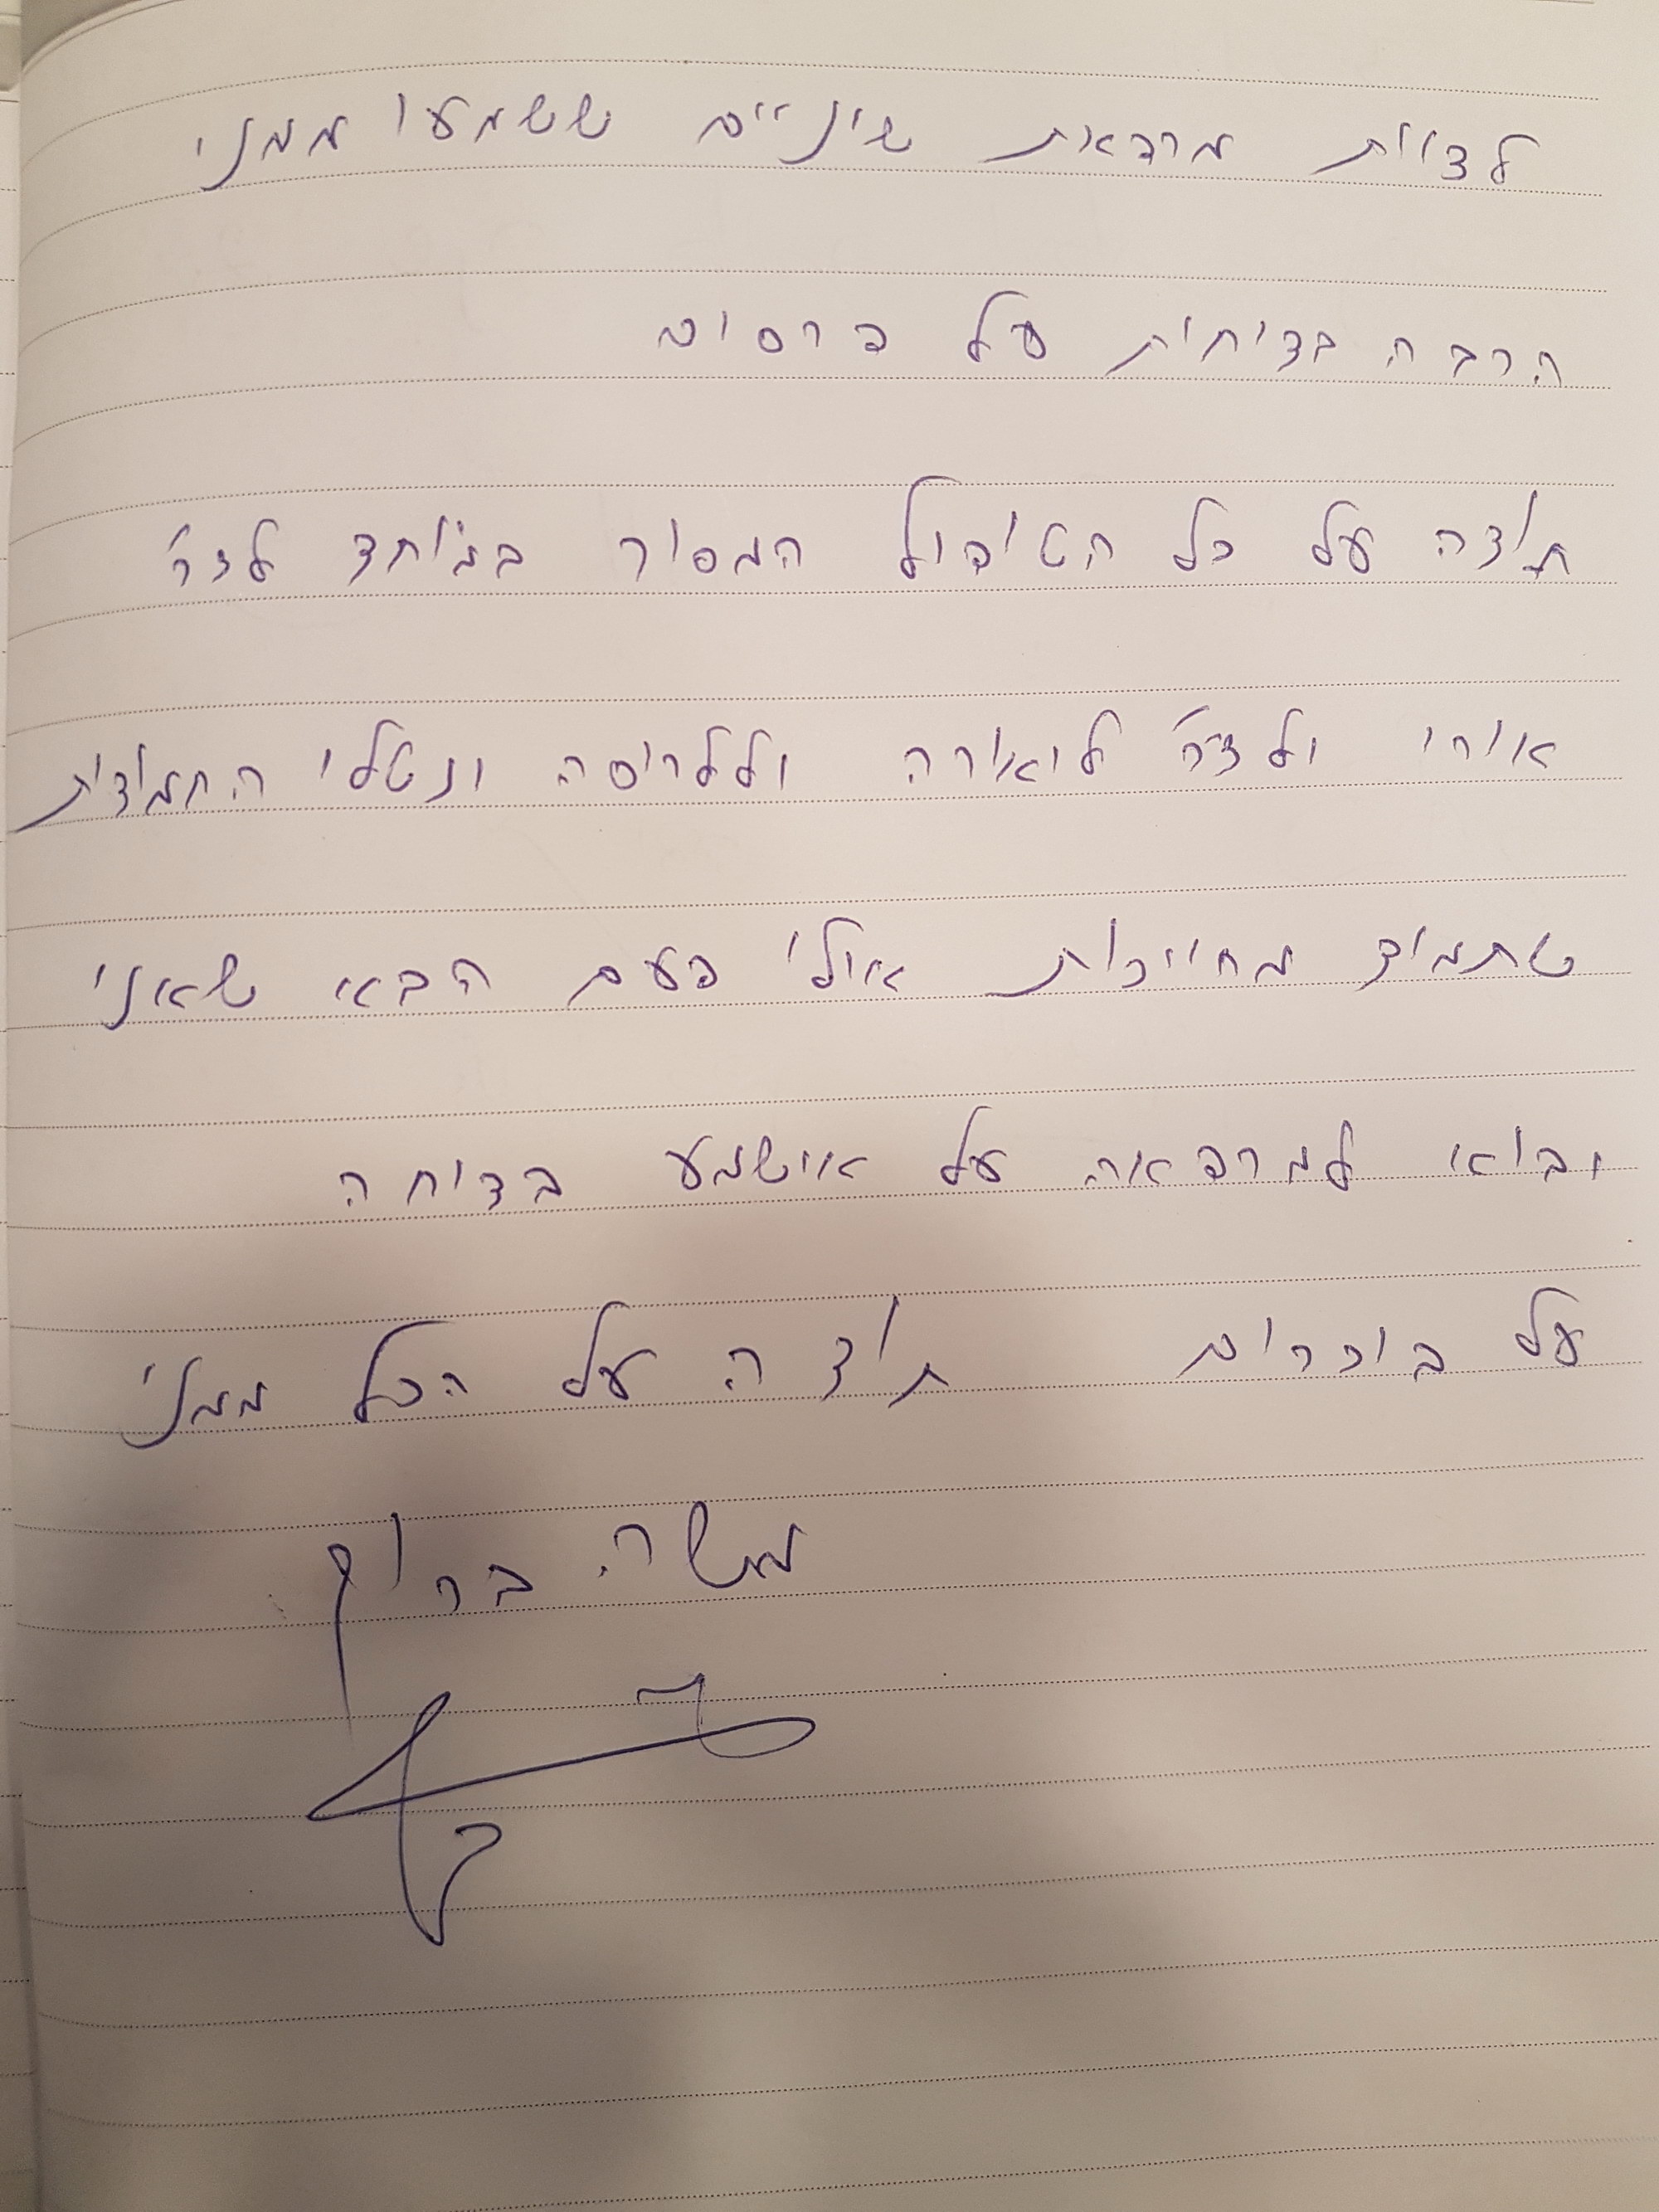 לצוות מרפאת שיניים ששמעו ממני
הרבה בדיחות על פרסים
תודה על כל הטיפול המסור במיוחד לדר'
אורי ולדר' ליאורה וללריסה ונטלי החמודות
שתמיד מחייכות אולי פעם הבא שאני
ובואי למרפאה על אישמע בדיחה
על בוכרים תודה על הכל ממני
משה ברוך